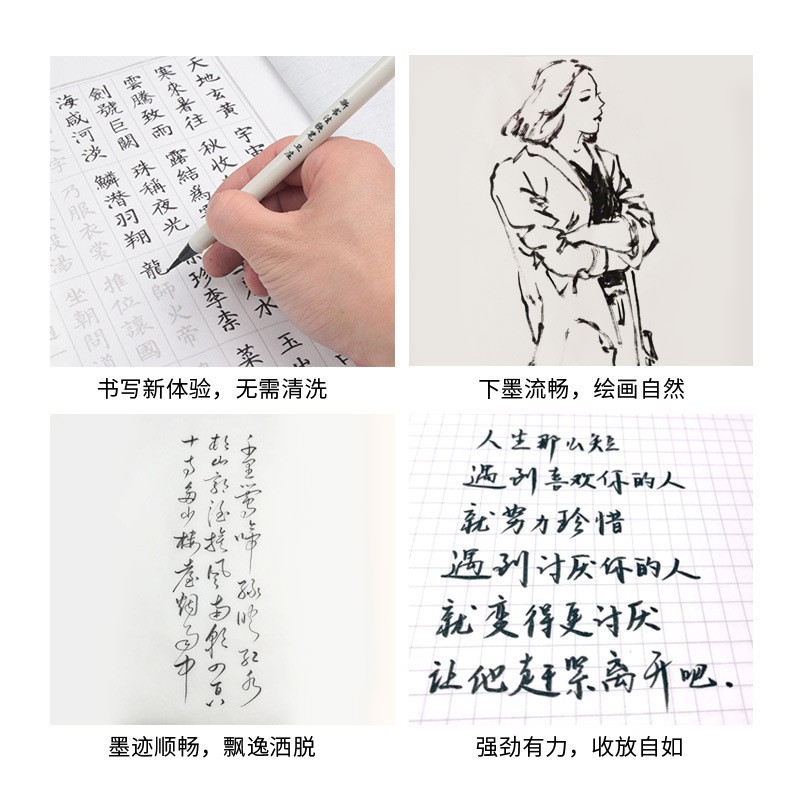 天地玄黃 宇宙
寒來暑往 秋收
雲騰致雨 露結為
劍號巨闕 珠稱夜光
珍李柰 菜
水 玉
海咸河淡 鱗潛羽翔 龍師火帝
乃服衣裳 推位讓國
坐朝問道
书写新体验，无需清洗
下墨流畅，绘画自然
千里鶯啼綠映紅水
村山郭酒旗風南朝四百八
十寺多少樓臺煙雨中
人生那么短
遇到喜欢你的人
就努力珍惜
遇到讨厌你的人
就变得更讨厌
让他赶紧离开吧.
墨迹顺畅，飘逸洒脱
强劲有力，收放自如